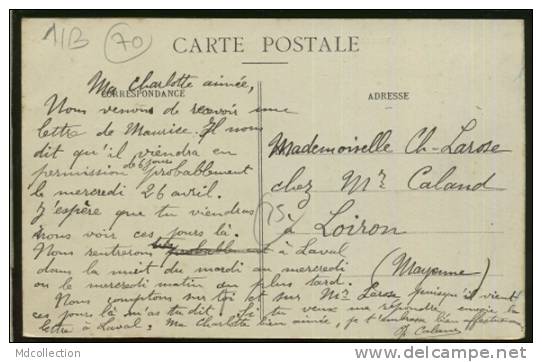 11B (70)
CARTE POSTALE
CORRESPONDANCE
ADRESSE
Ma Charlotte aimée,
Nous venons de recevoir une
lettre de Maurice. Il nous
dit qu'il viendra en
permission de 6 jours probablement
le mercredi 26 avril.
J'espère que tu viendras
nous voir ces jours là.
Nous rentrerons à Laval
dans la nuit du mardi au mercredi
ou le mercredi matin au plus tard.
Nous comptons sur toi et sur Mr Larose puisqu'il vient
ces jours là m'as tu dit. Si tu veux me répondre envoie la
lettre à Laval. Ma Charlotte bien aimée, je t'embrasse bien affectueusement
Mademoiselle Ch. Larose
chez Mr Caland
à Loiron
(Mayenne)
Mdcollection
www.delcampe.net